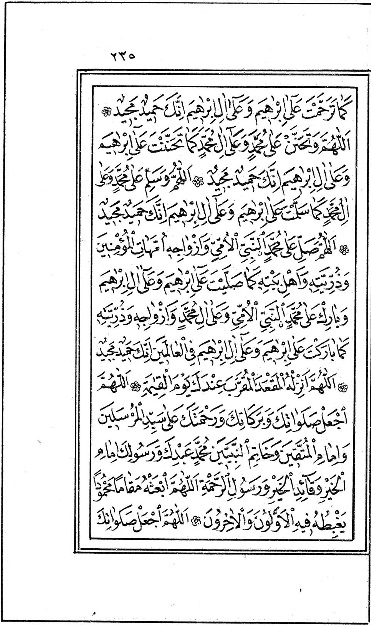 ٢٣٥
كَمَا تَرَحَّمْتَ عَلٰى اِبْرٰهِيمَ وَعَلٰى اٰلِ اِبْرٰهِيمَ اِنَّكَ حَمِيدٌ مَجِيدٌ ۞
اَللّٰهُمَّ وَتَحَنَّنْ عَلٰى مُحَمَّدٍ وَعَلٰى اٰلِ مُحَمَّدٍ كَمَا تَحَنَّنْتَ عَلٰى اِبْرٰهِيمَ
وَعَلٰى اٰلِ اِبْرٰهِيمَ اِنَّكَ حَمِيدٌ مَجِيدٌ ۞ اَللّٰهُمَّ وَسَلِّمْ عَلٰى مُحَمَّدٍ وَعَلٰى
اٰلِ مُحَمَّدٍ كَمَا سَلَّمْتَ عَلٰى اِبْرٰهِيمَ وَعَلٰى اٰلِ اِبْرٰهِيمَ اِنَّكَ حَمِيدٌ مَجِيدٌ
۞ اَللّٰهُمَّ صَلِّ عَلٰى مُحَمَّدٍ النَّبِيِّ الْاُمِّيِّ وَاَزْوَاجِهِ اُمَّهَاتِ الْمُؤْمِنِينَ
وَذُرِّيَّتِهِ وَاَهْلِ بَيْتِهِ كَمَا صَلَّيْتَ عَلٰى اِبْرٰهِيمَ وَعَلٰى اٰلِ اِبْرٰهِيمَ
وَبَارِكْ عَلٰى مُحَمَّدٍ النَّبِيِّ الْاُمِّيِّ وَعَلٰى اٰلِ مُحَمَّدٍ وَاَزْوَاجِهِ وَذُرِّيَّتِهِ
كَمَا بَارَكْتَ عَلٰى اِبْرٰهِيمَ وَعَلٰى اٰلِ اِبْرٰهِيمَ فِى الْعَالَمِينَ اِنَّكَ حَمِيدٌ مَجِيدٌ
۞ اَللّٰهُمَّ اَنْزِلْهُ الْمَقْعَدَ الْمُقَرَّبَ عِنْدَكَ يَوْمَ الْقِيٰمَةِ ۞ اَللّٰهُمَّ
اجْعَلْ صَلَوَاتِكَ وَبَرَكَاتِكَ وَرَحْمَتَكَ عَلٰى سَيِّدِ الْمُرْسَلِينَ
وَاِمَامِ الْمُتَّقِينَ وَخَاتِمِ النَّبِيِّينَ مُحَمَّدٍ عَبْدِكَ وَرَسُولِكَ اِمَامِ
الْخَيْرِ وَقَائِدِ الْخَيْرِ وَرَسُولِ الرَّحْمَةِ اَللّٰهُمَّ ابْعَثْهُ مَقَامًا مَحْمُودًا
يَغْبِطُهُ فِيهِ الْاَوَّلُونَ وَالْاٰخِرُونَ ۞ اَللّٰهُمَّ اجْعَلْ صَلَوَاتِكَ